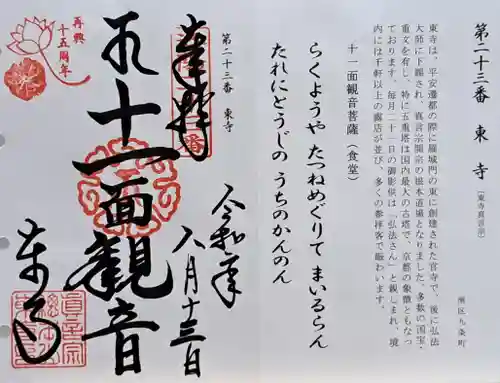 第二十三番 東寺
〔東寺真言宗〕
南区九条町
東寺は、平安遷都の際に羅城門の東に創建された官寺で、後に弘法
大師に下賜され、真言宗開宗の根本道場となりました。多数の国宝・
重文を有し、特に五重塔は国内最大の古塔で、京都の象徴ともなっ
ております。毎月二十一日の御影供は「弘法さん」と親しまれ、境
内には千軒以上の露店が並び、多くの参拝客で賑わいます。
十一面観音菩薩(食堂)
らくようや たつねめぐりて まいるらん
たれにとうじの うちのかんのん
第二十三番 東寺
奉拝
十一面観音
令和二年
八月十三日
東寺
再興
十五周年